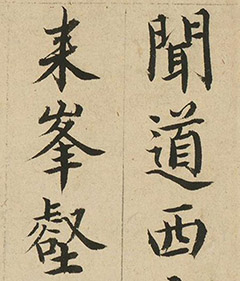 聞道西
来峯壑